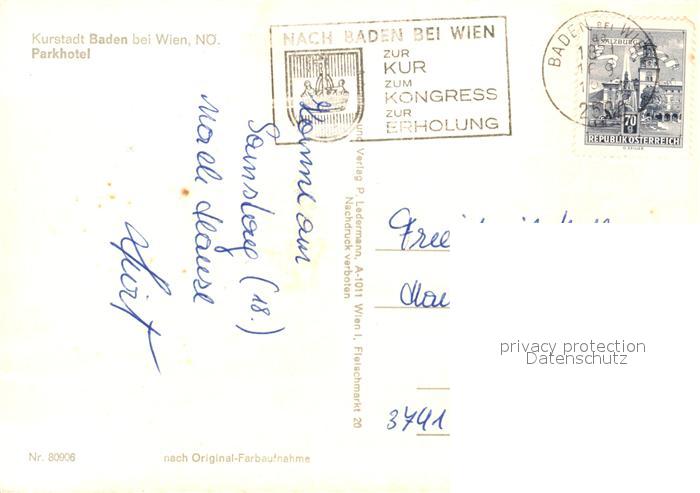 Kurstadt Baden bei Wien, NÖ.
Parkhotel
NACH BADEN BEI WIEN
ZUR
KUR
ZUM
KONGRESS
ZUR
ERHOLUNG
BADEN BEI WIEN
SALZBURG
70
REPUBLIK ÖSTERREICH
Komme am
Samstag (18.)
nach Hause
und Verlag P. Ledermann, A-1011 Wien I, Fleischmarkt 20
Nachdruck verboten
3741
privacy protection
Datenschutz
Nr. 80906
nach Original-Farbaufnahme